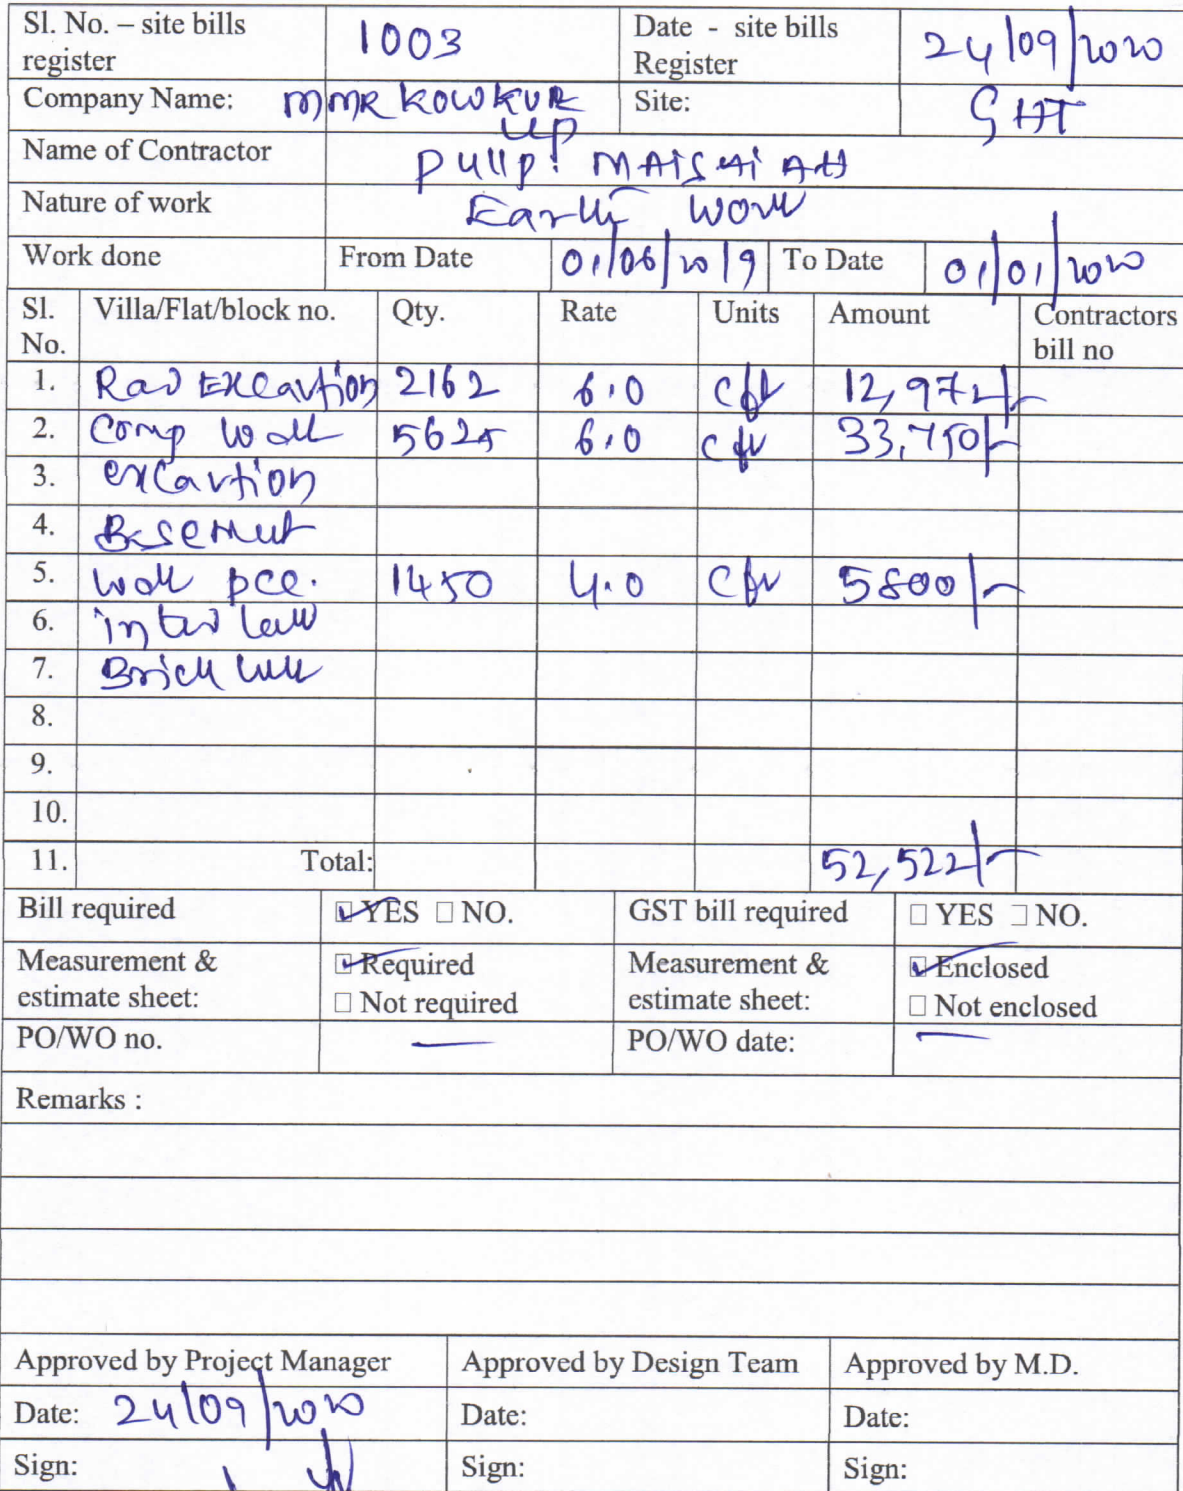 Sl. No. – site bills register 1003 Date - site bills Register 24/09/2020
Company Name: MMR KOWKUR LLP Site: GHT
Name of Contractor Pullpi MAISAIAH
Nature of work Earth work
Work done From Date 01/06/2019 To Date 01/01/2020
Sl. No. Villa/Flat/block no. Qty. Rate Units Amount Contractors bill no
1. Rad Excavtion 2162 6.0 cft 12,972/-
2. Comp wall 5625 6.0 cft 33,750/-
3. excavtion
4. Basemut
5. wall pcc. 1450 4.0 cft 5800/-
6.
7. Brick
8.
9.
10.
11. Total: 52,522/-
Bill required YES NO. GST bill required YES NO.
Measurement & estimate sheet: Required Not required Measurement & estimate sheet: Enclosed Not enclosed
PO/WO no. — PO/WO date: —
Remarks :
Approved by Project Manager Approved by Design Team Approved by M.D.
Date: 24/09/2020 Date: Date:
Sign: Sign: Sign: